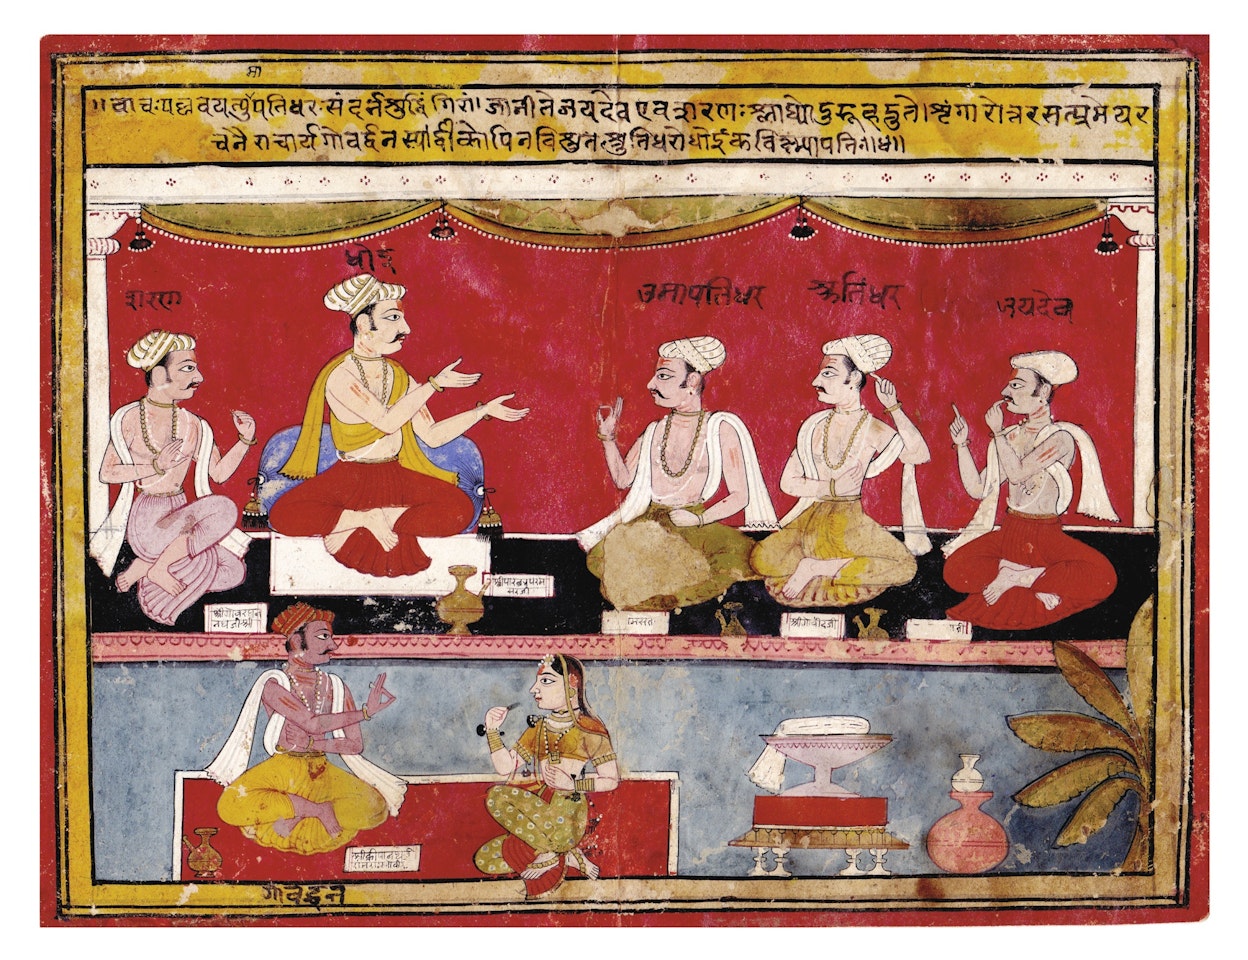 मा
॥वाचःपल्लवयत्युपतिधरःसंदर्भशुद्धिं गिरां।जानीतेजयदेवएवशरणःश्लाघ्योदुरूहद्रुते।शृंगारोत्तरसत्प्रमेयर
चनैराचार्यगोवर्द्धनस्पर्द्धीकोपिनविश्रुतःश्रुतिधरोधोईकविक्ष्मापतिः॥४॥
धोई
शरण
उमापतिधर
श्रुतिधर
जयदेव
गोवर्द्धन